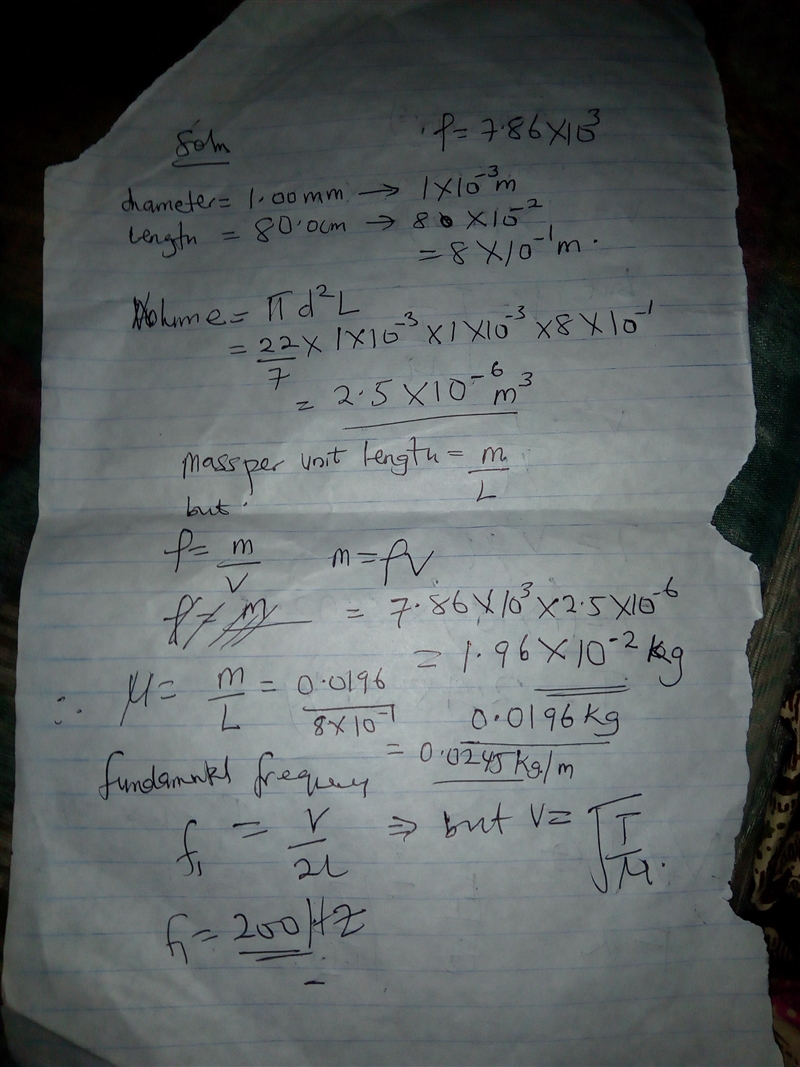 Soln
ρ = 7.86×10³
diameter = 1.00mm → 1×10⁻³m
Length = 80.0cm → 80 ×10⁻²
= 8×10⁻¹m.
Volume = πd²L
= 22/7 × 1×10⁻³ × 1×10⁻³ × 8×10⁻¹
= 2.5×10⁻⁶m³
Mass per unit length = m/L
but.
ρ = m/V m = ρV
ρ = m = 7.86×10³×2.5×10⁻⁶
= 1.96×10⁻² kg
0.0196 kg
∴ μ = m/L = 0.0196/8×10⁻¹
= 0.0245 kg/m
fundamental frequency
f₁ = V/2L ⇒ but V = √T/μ.
f₁ = 200HZ